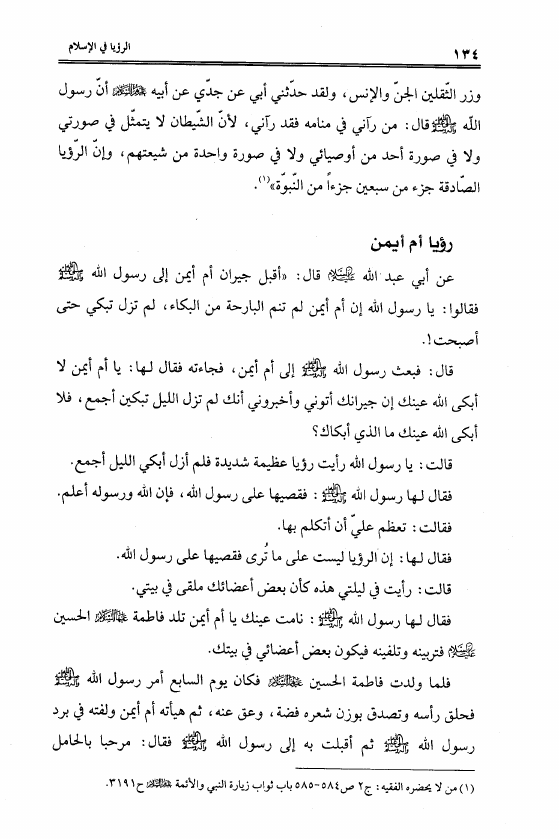 ١٣٤ الرؤيا في الإسلام
وزر الثّقلين الجنّ والإنس، ولقد حدّثني أبي عن جدّي عن أبيه عليهم السلام أنّ رسول
اللّه ﷺ قال: من رآني في منامه فقد رآني، لأنّ الشّيطان لا يتمثّل في صورتي
ولا في صورة أحد من أوصيائي ولا في صورة واحدة من شيعتهم، وإنّ الرّؤيا
الصّادقة جزء من سبعين جزءاً من النّبوّة»(١).
رؤيا أم أيمن
عن أبي عبد الله عليه السلام قال: «أقبل جيران أم أيمن إلى رسول الله ﷺ
فقالوا: يا رسول الله إن أم أيمن لم تنم البارحة من البكاء، لم تزل تبكي حتى
أصبحت!.
قال: فبعث رسول الله ﷺ إلى أم أيمن، فجاءته فقال لها: يا أم أيمن لا
أبكى الله عينك إن جيرانك أتوني وأخبروني أنك لم تزل الليل تبكين أجمع، فلا
أبكى الله عينك ما الذي أبكاك؟
قالت: يا رسول الله رأيت رؤيا عظيمة شديدة فلم أزل أبكي الليل أجمع.
فقال لها رسول الله ﷺ: فقصيها على رسول الله، فإن الله ورسوله أعلم.
فقالت: تعظم عليّ أن أتكلم بها.
فقال لها: إن الرؤيا ليست على ما تُرى فقصيها على رسول الله.
قالت: رأيت في ليلتي هذه كأن بعض أعضائك ملقى في بيتي.
فقال لها رسول الله ﷺ: نامت عينك يا أم أيمن تلد فاطمة عليها السلام الحسين
عليه السلام فتربينه وتلفينه فيكون بعض أعضائي في بيتك.
فلما ولدت فاطمة الحسين عليهما السلام فكان يوم السابع أمر رسول الله ﷺ
فحلق رأسه وتصدق بوزن شعره فضة، وعق عنه، ثم هيأته أم أيمن ولفته في برد
رسول الله ﷺ ثم أقبلت به إلى رسول الله ﷺ فقال: مرحبا بالحامل
(١) من لا يحضره الفقيه: ج٢ ص٥٨٤-٥٨٥ باب ثواب زيارة النبي والأئمة عليهم السلام ح٣١٩١.